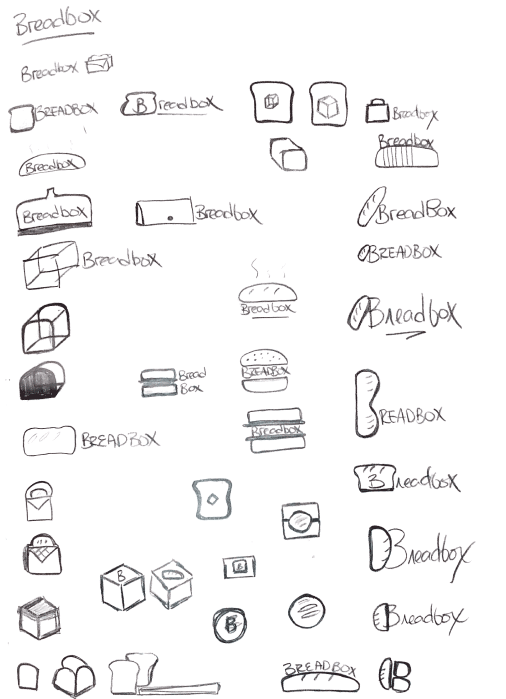 Breadbox
Breadbox
BREADBOX
Breadbox
Breadbox
Breadbox
Breadbox
Breadbox
Breadbox
BreadBox
Breadbox
BREADBOX
Breadbox
Breadbox
Bread
Box
BREADBOX
Breadbox
READBOX
BREADBOX
Breadbox
B
Breadbox
B
Breadbox
B
BREADBOX
B